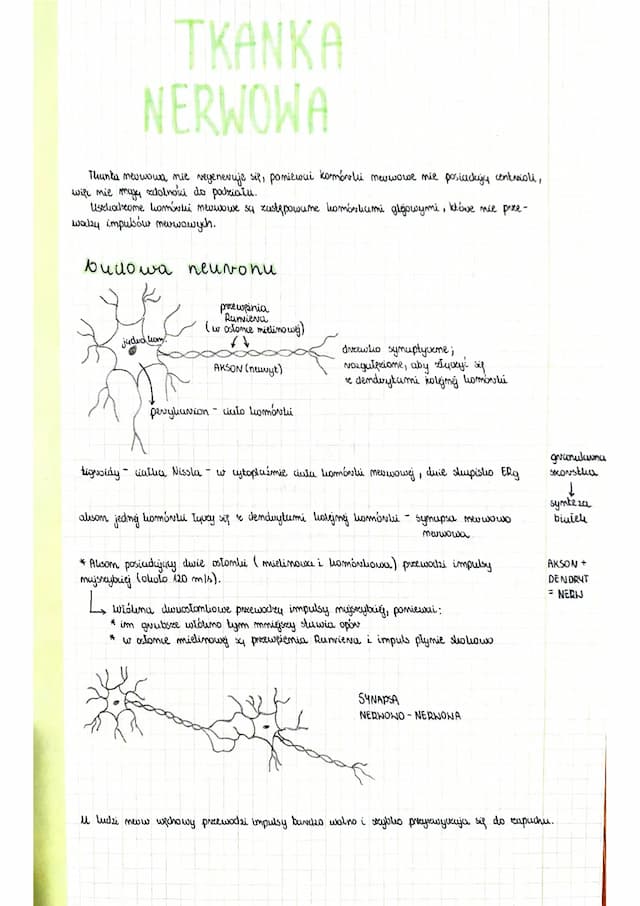 TKANKA
NERWOWA
Tkanka nerwowa nie regeneruje się, ponieważ komórki nerwowe nie posiadają centrioli,
więc nie mają zdolności do podziału.
Uszkodzone komórki nerwowe są zastępowane komórkami glejowymi, które nie prze-
wodzą impulsów nerwowych.
budowa neuronu
przewężenia
Ranviera
(w osłonie mielinowej)
jądro kom.
AKSON (neuryt)
drzewko synaptyczne;
rozgałęzione, aby złączyć się
z dendrytami kolejnej komórki
perykarion - ciało komórki
tigroidy - ciałka Nissla - w cytoplazmie ciała komórki nerwowej, duże skupisko ERg
granularna
szorstka
↓
synteza
białek
akson jednej komórki łączy się z dendrytami kolejnej komórki - synapsa nerwowo
nerwowa
* Akson posiadający dwie osłonki (mielinowa i komórkowa) przewodzi impulsy
najszybciej (około 120 m/s).
AKSON +
DENDRYT
= NERW
Włókna dwuosłonkowe przewodzą impulsy najszybciej, ponieważ:
* im grubsze włókno tym mniejszy stawia opór
* w osłonie mielinowej są przewężenia Ranviera i impuls płynie skokowo
SYNAPSA
NERWOWO - NERWOWA
U ludzi nerw węchowy przewodzi impulsy bardzo wolno i szybko przyzwyczaja się do zapachu.